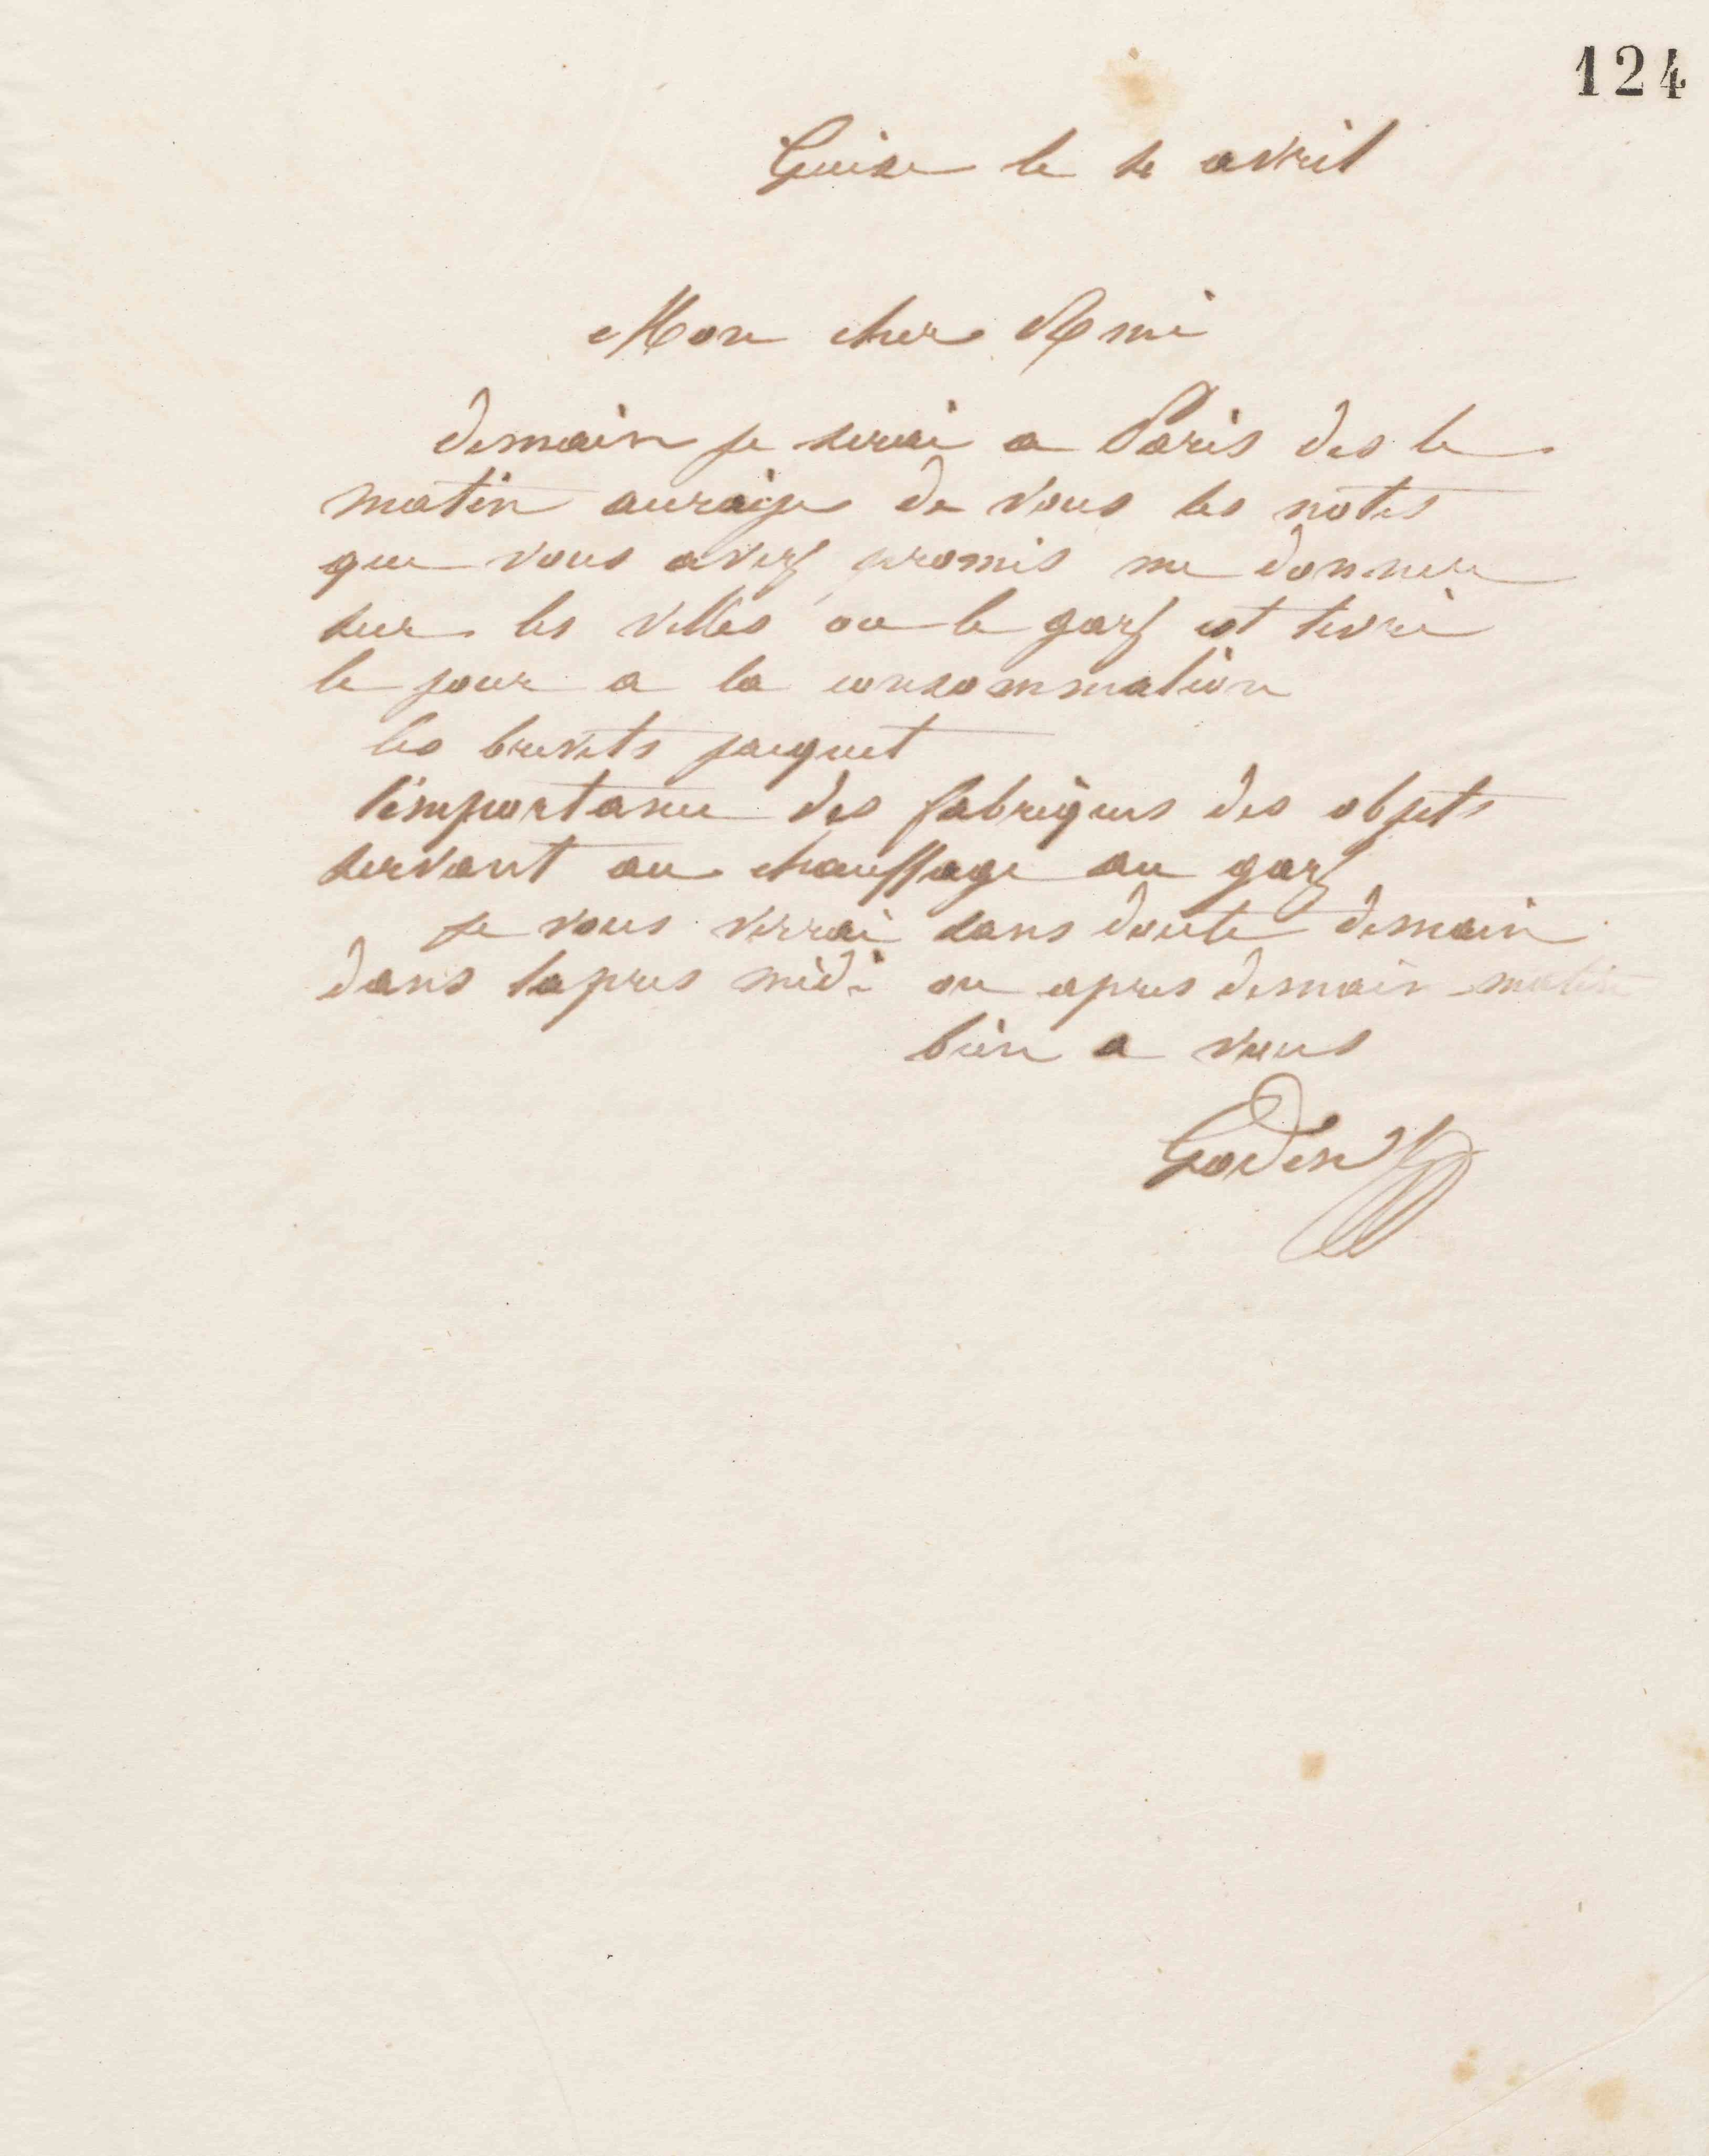 124
Guise le avril
Mon cher Ami
demain je serai a Paris des le
matin auraije de vous les notes
que vous avez promis me donner
sur les villes ou le gaz est livré
le jour a la consommation
les brevets jacquet
l'importance des fabriques des objets
servant au chauffage au gaz
je vous verrai sans doute demain
dans lapres midi ou apres demain matin
bien a vous
Godin